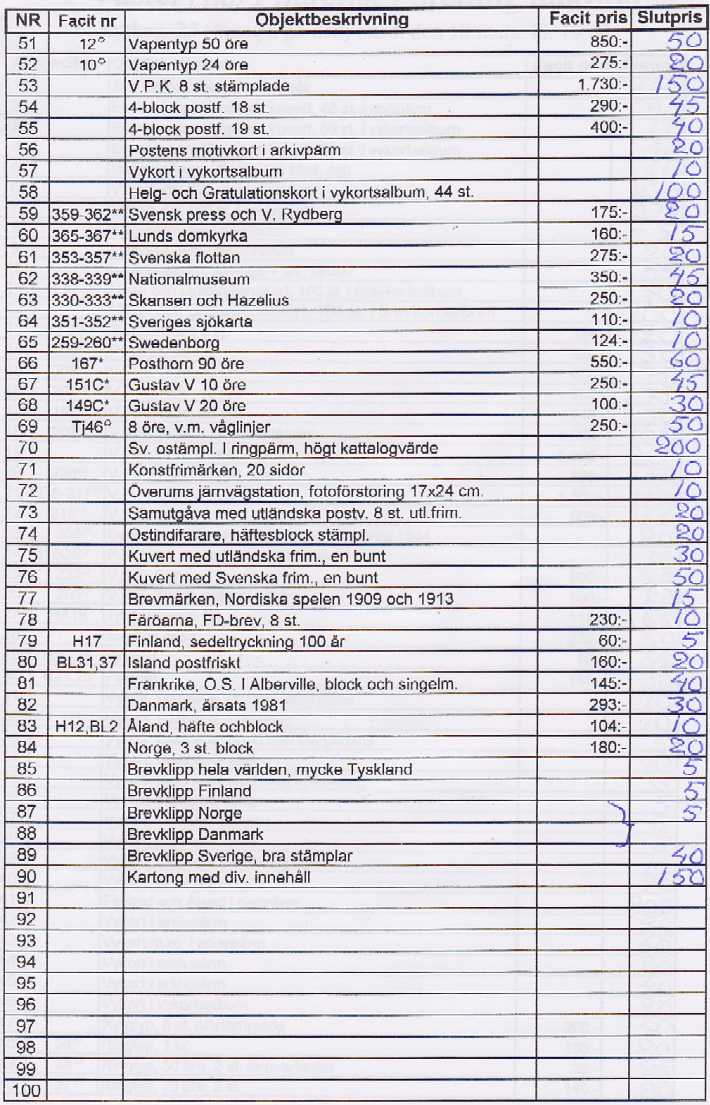 NR Facit nr Objektbeskrivning Facit pris Slutpris
51 12° Vapentyp 50 öre 850:- 50
52 10° Vapentyp 24 öre 275:- 20
53 V.P.K. 8 st. stämplade 1.730:- 150
54 4-block postf. 18 st. 290:- 45
55 4-block postf. 19 st. 400:- 40
56 Postens motivkort i arkivpärm 20
57 Vykort i vykortsalbum 10
58 Helg- och Gratulationskort i vykortsalbum, 44 st. 100
59 359-362** Svensk press och V. Rydberg 175:- 20
60 365-367** Lunds domkyrka 160:- 15
61 353-357** Svenska flottan 275:- 20
62 338-339** Nationalmuseum 350:- 45
63 330-333** Skansen och Hazelius 250:- 20
64 351-352** Sveriges sjökarta 110:- 10
65 259-260** Swedenborg 124:- 10
66 167* Posthorn 90 öre 550:- 60
67 151C* Gustav V 10 öre 250:- 45
68 149C* Gustav V 20 öre 100:- 30
69 Tj46° 8 öre, v.m. våglinjer 250:- 50
70 Sv. ostämpl. I ringpärm, högt kattalogvärde 200
71 Konstfrimärken, 20 sidor 10
72 Överums järnvägstation, fotoförstoring 17x24 cm. 10
73 Samutgåva med utländska postv. 8 st. utl.frim. 20
74 Ostindifarare, häftesblock stämpl. 20
75 Kuvert med utländska frim., en bunt 30
76 Kuvert med Svenska frim., en bunt 50
77 Brevmärken, Nordiska spelen 1909 och 1913 15
78 Färöarna, FD-brev, 8 st. 230:- 10
79 H17 Finland, sedeltryckning 100 år 60:- 5
80 BL31,37 Island postfriskt 160:- 20
81 Frankrike, O.S. I Alberville, block och singelm. 145:- 40
82 Danmark, årsats 1981 293:- 30
83 H12,BL2 Åland, häfte ochblock 104:- 10
84 Norge, 3 st. block 180:- 20
85 Brevklipp hela världen, mycke Tyskland 5
86 Brevklipp Finland 5
87 Brevklipp Norge 5
88 Brevklipp Danmark
89 Brevklipp Sverige, bra stämplar 40
90 Kartong med div. innehåll 150
91
92
93
94
95
96
97
98
99
100